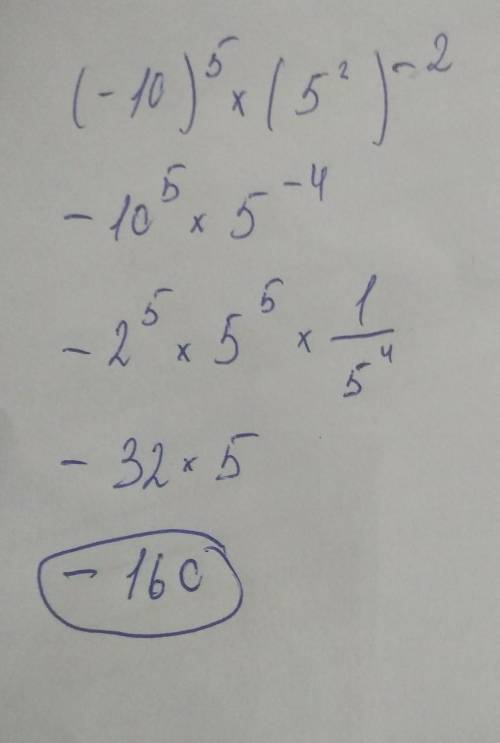 (-10)⁵ × (5²)⁻²
-10⁵ × 5⁻⁴
-2⁵ × 5⁵ × 1/5⁴
-32 × 5
-160